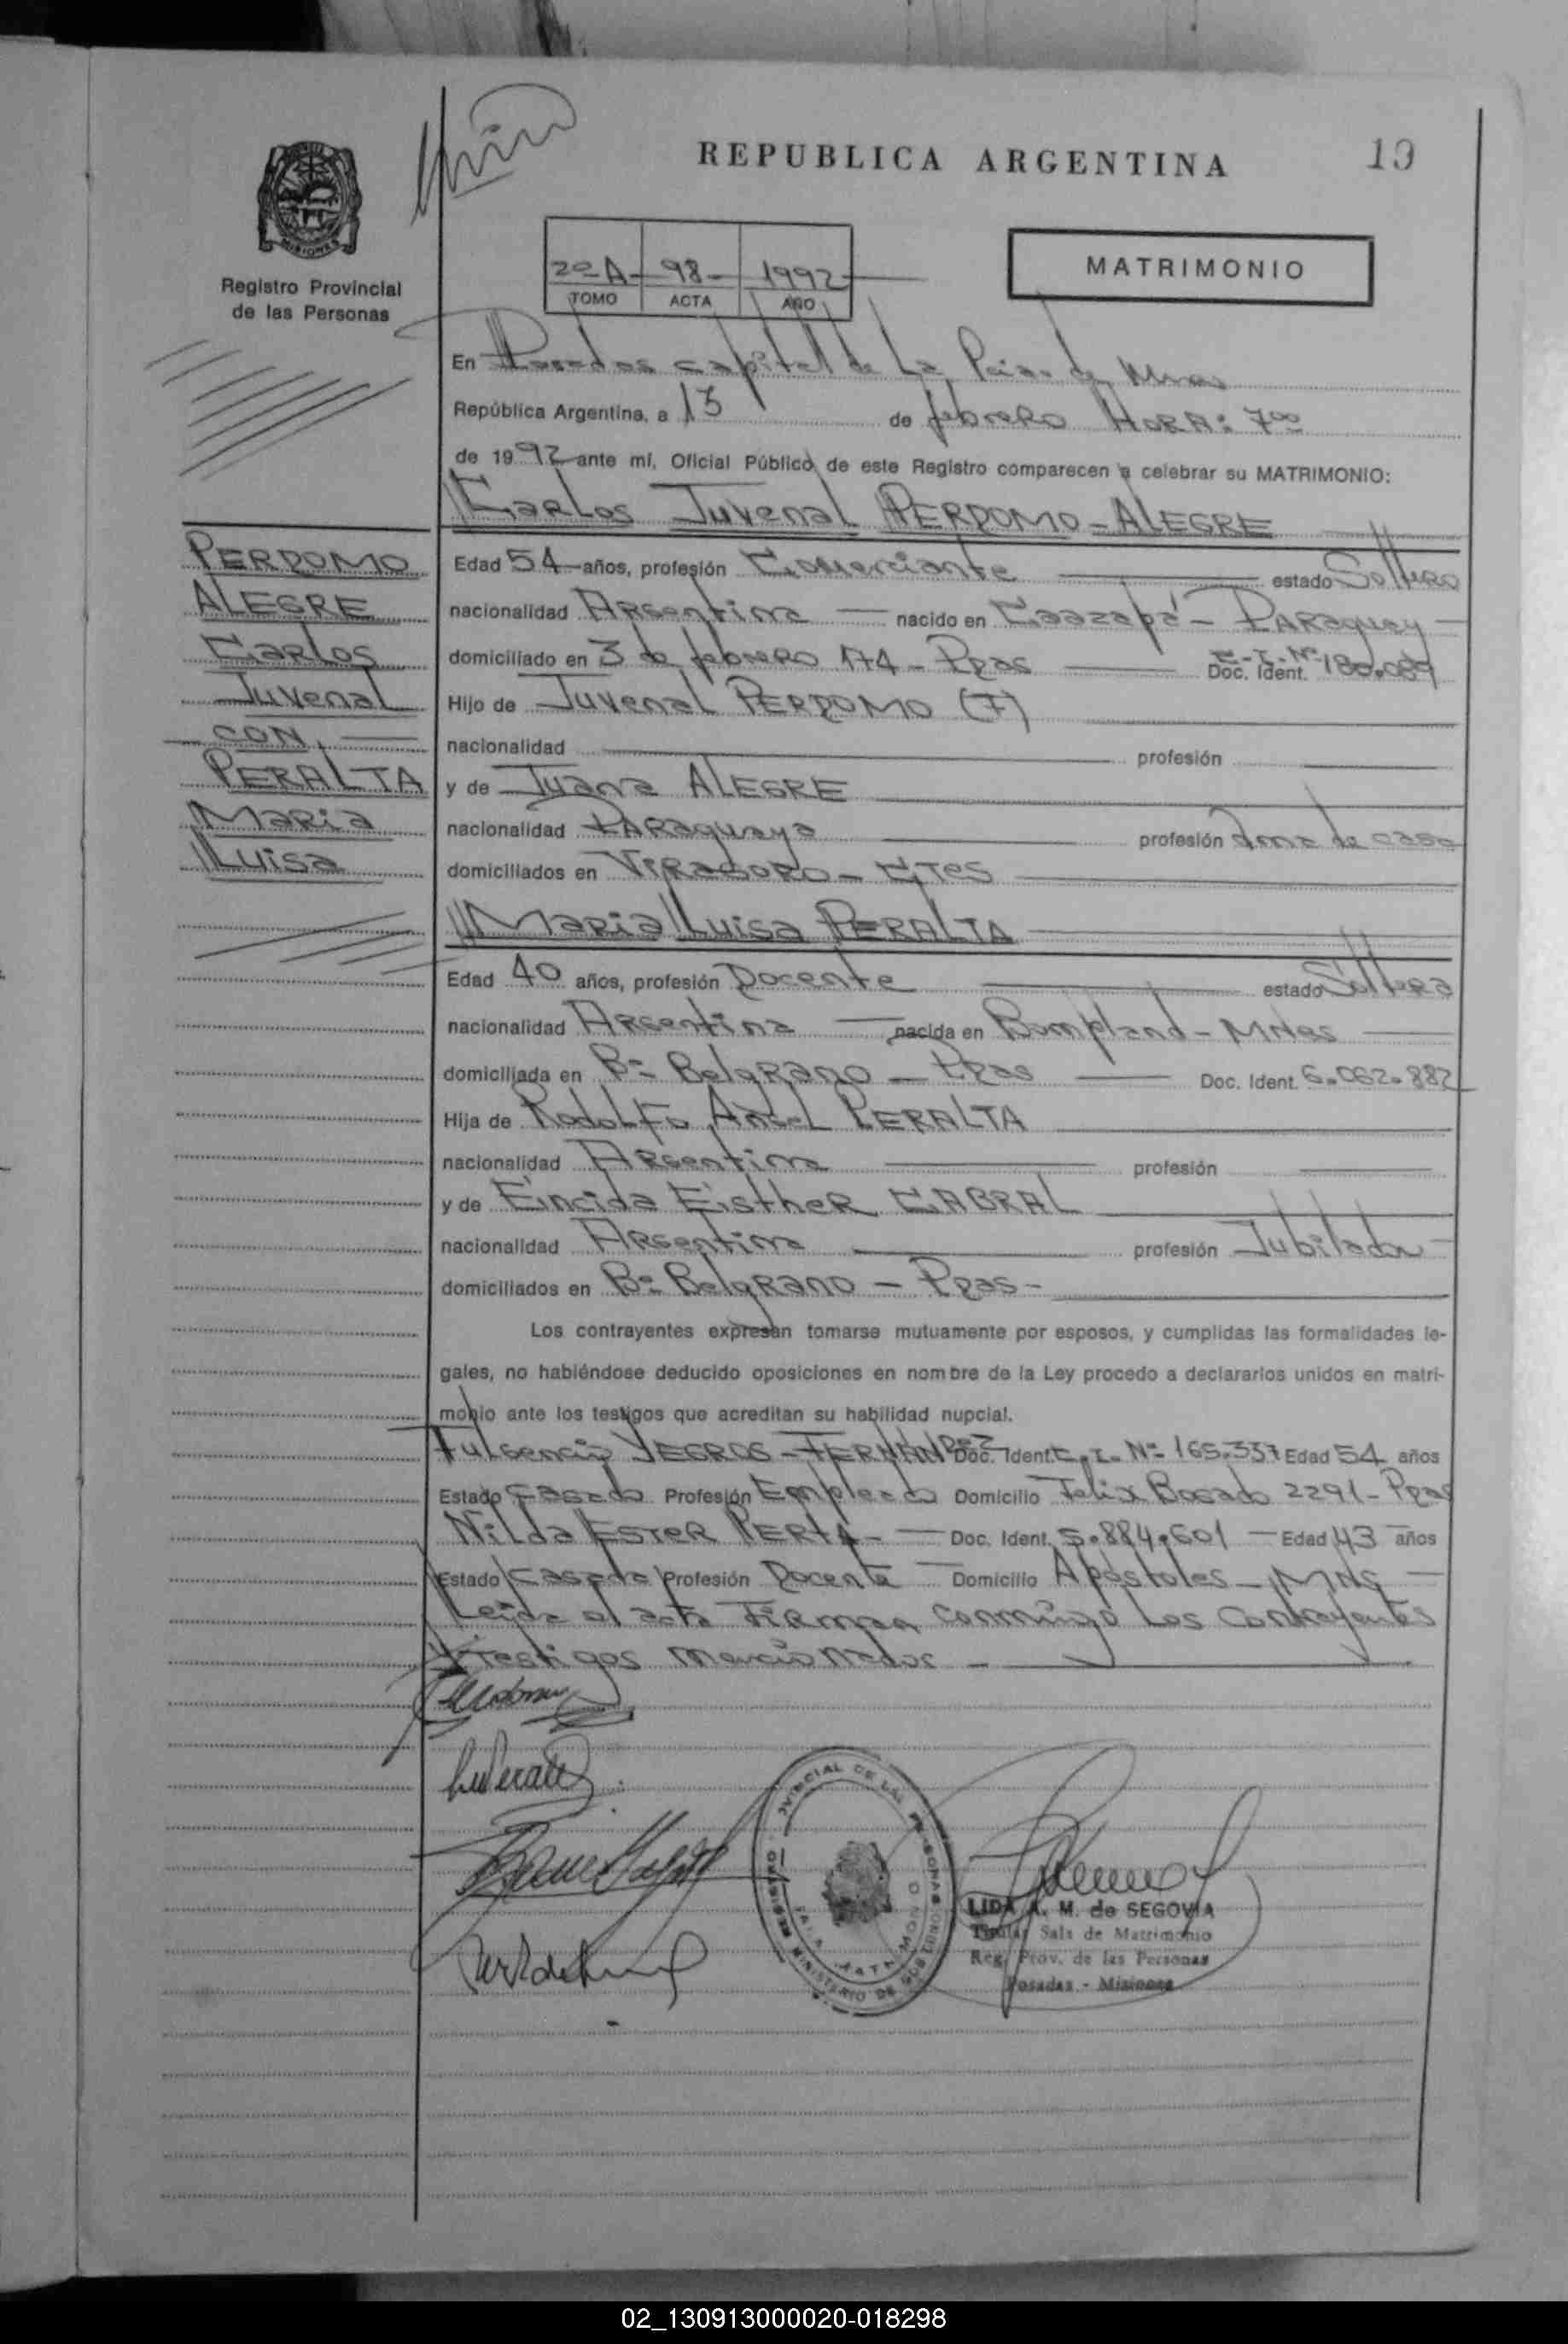 REPUBLICA ARGENTINA
19
MISIONES
Registro Provincial
de las Personas
2º A - 98 - 1992
TOMO ACTA AÑO
MATRIMONIO
En Posadas capital de La Pcia. de Mnes
República Argentina, a 13 de febrero HORA: 7ºº
de 1992 ante mí, Oficial Público de este Registro comparecen a celebrar su MATRIMONIO:
Carlos Juvenal PERDOMO-ALEGRE
PERDOMO
ALEGRE
Carlos
Juvenal
CON
PERALTA
Maria
Luisa
Edad 54 años, profesión Comerciante estado Soltero
nacionalidad Argentina nacido en Caazapá - Paraguay
domiciliado en 3 de febrero 174 - Pdas Doc. Ident. C.I. Nº 180.089
Hijo de Juvenal PERDOMO (F)
nacionalidad profesión
y de Juana ALEGRE
nacionalidad Paraguaya profesión ama de casa
domiciliados en Virasoro - Ctes
Maria Luisa PERALTA
Edad 40 años, profesión Docente estado Soltera
nacionalidad Argentina nacida en Bompland - Mnes
domiciliada en Bº Belgrano - Pdas Doc. Ident. 6.062.882
Hija de Rodolfo Angel PERALTA
nacionalidad Argentina profesión
y de Esther CABRAL
nacionalidad Argentina profesión Jubilada
domiciliados en Bº Belgrano - Pdas -
Los contrayentes expresan tomarse mutuamente por esposos, y cumplidas las formalidades le-
gales, no habiéndose deducido oposiciones en nombre de la Ley procedo a declararlos unidos en matri-
monio ante los testigos que acreditan su habilidad nupcial.
Fulgencio YEGROS - FERNANDEZ Doc. Ident. C.I. Nº 165.337 Edad 54 años
Estado Casado Profesión Empleado Domicilio Felix Bogado 2291 - Pdas
Nilda ESTER Doc. Ident. 5.884.601 Edad 43 años
Estado Casada Profesión Docente Domicilio Apóstoles - Mns
Leida el acta Firman conmigo Los Contrayentes
y testigos mencionados -
REGISTRO PROVINCIAL DE LAS PERSONAS
MINISTERIO DE GOBIERNO
SALA MATRIMONIO
LIDA A. M. de SEGOVIA
Titular Sala de Matrimonio
Reg. Prov. de las Personas
Posadas - Misiones
02_130913000020-018298